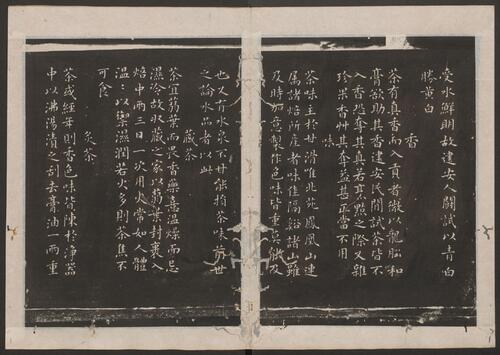 受水鮮明故建安人鬭試以青白
勝黃白
香
茶有真香而入貢者微以龍腦和
膏欲助其香建安民間試茶皆不
入香恐奪其真若烹點之際又雜
珍果香艸其奪益甚正當不用
味
茶味主於甘滑惟北苑鳳凰山連
屬諸焙所產者味佳隔谿諸山雖
及時加意製作色味皆重莫能及
也又有水泉不甘能損茶味前世
之論水品者以此
藏茶
茶宜蒻葉而畏香藥喜溫燥而忌
濕冷故收藏之家以蒻葉封裹入
焙中兩三日一次用火常如人體
溫〻以禦濕潤若火多則茶焦不
可食
炙茶
茶或經年則香色味皆陳於淨器
中以沸湯漬之刮去膏油一兩重